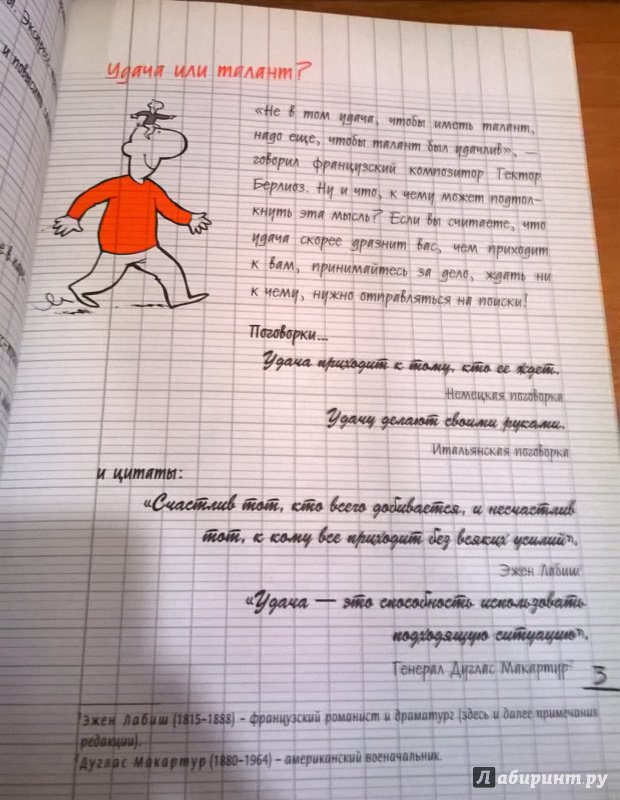 Экспресс-
и повысить са
Удача или талант?
«Не в том удача, чтобы иметь талант,
надо еще, чтобы талант был удачлив», —
говорил французский композитор Гектор
Берлиоз. Ну и что, к чему может подтол-
кнуть эта мысль? Если вы считаете, что
удача скорее дразнит вас, чем приходит
к вам, принимайтесь за дело, ждать ни
к чему, нужно отправляться на поиски!
Поговорки...
Удача приходит к тому, кто ее ждет.
Немецкая поговорка
Удачу делают своими руками.
Итальянская поговорка
и цитаты:
«Счастлив тот, кто всего добивается, и несчастлив
тот, к кому все приходит без всяких усилий».
Эжен Лабиш
«Удача — это способность использовать
подходящую ситуацию».
Генерал Дуглас Макартур²
3
Эжен Лабиш (1815–1888) – французский романист и драматург (здесь и далее примечания
редакции).
² Дуглас Макартур (1880–1964) – американский военачальник.
Лабиринт.ру